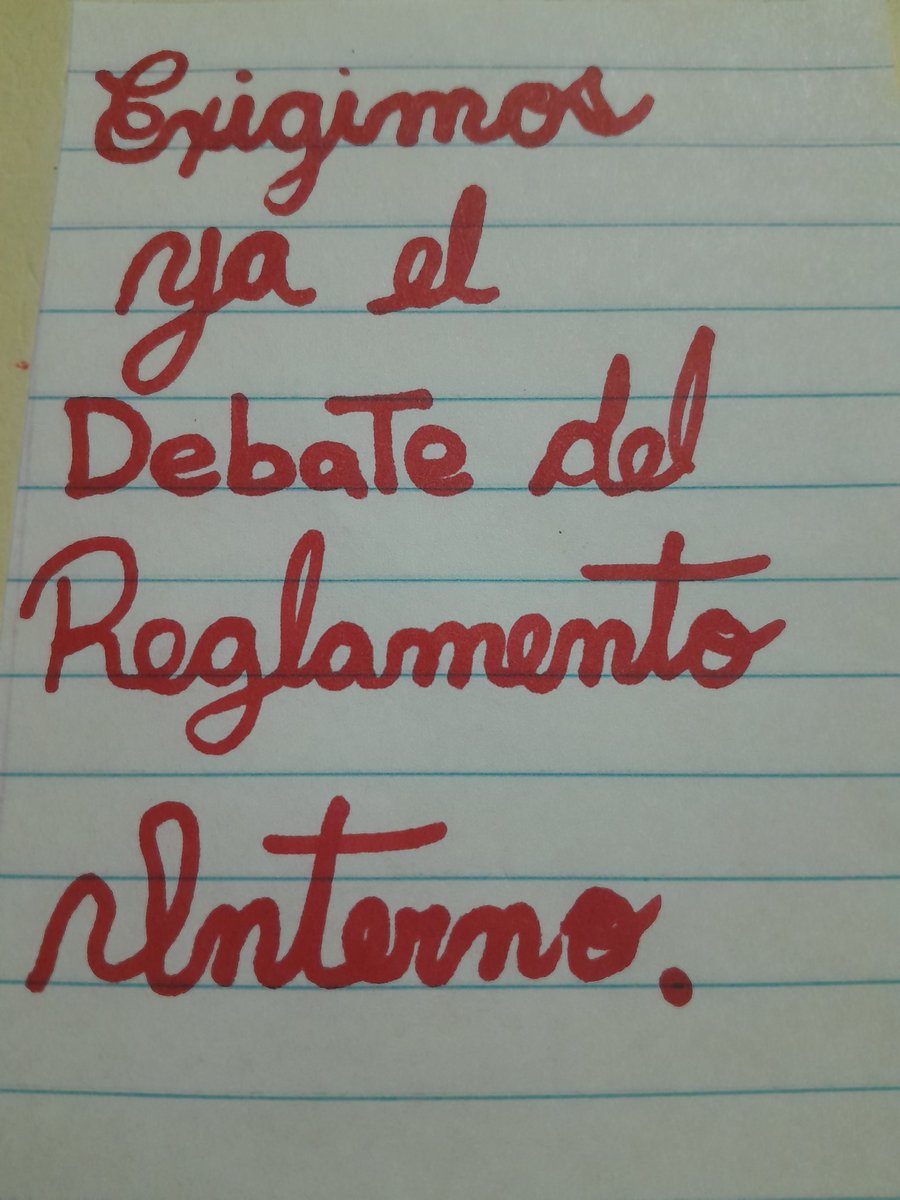 Exigimos
ya el
Debate del
Reglamento
Interno.